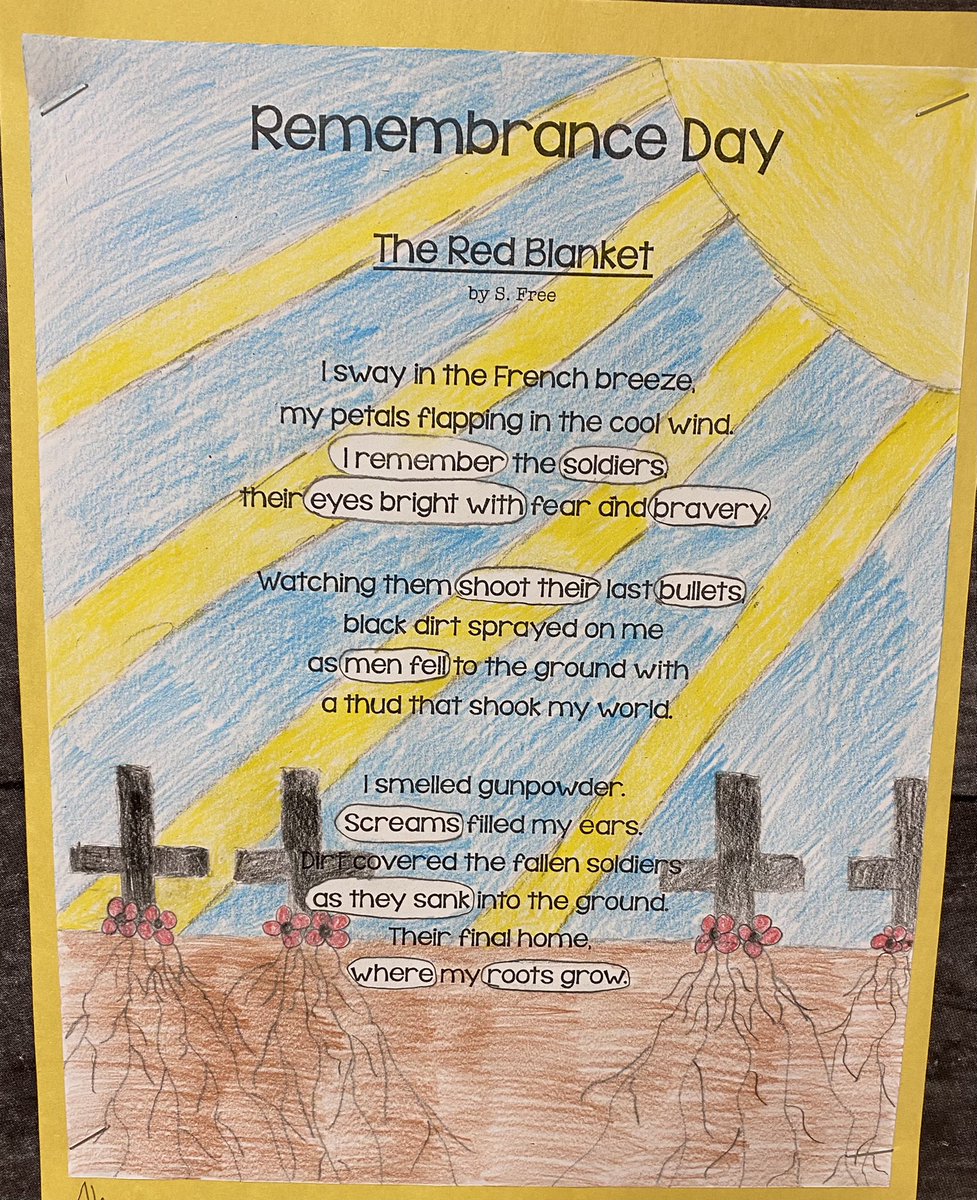 Remembrance Day
The Red Blanket
by S. Free
I sway in the French breeze,
my petals flapping in the cool wind.
I remember the soldiers,
their eyes bright with fear and bravery.
Watching them shoot their last bullets
black dirt sprayed on me
as men fell to the ground with
a thud that shook my world.
I smelled gunpowder.
Screams filled my ears.
Dirt covered the fallen soldiers
as they sank into the ground.
Their final home,
where my roots grow.